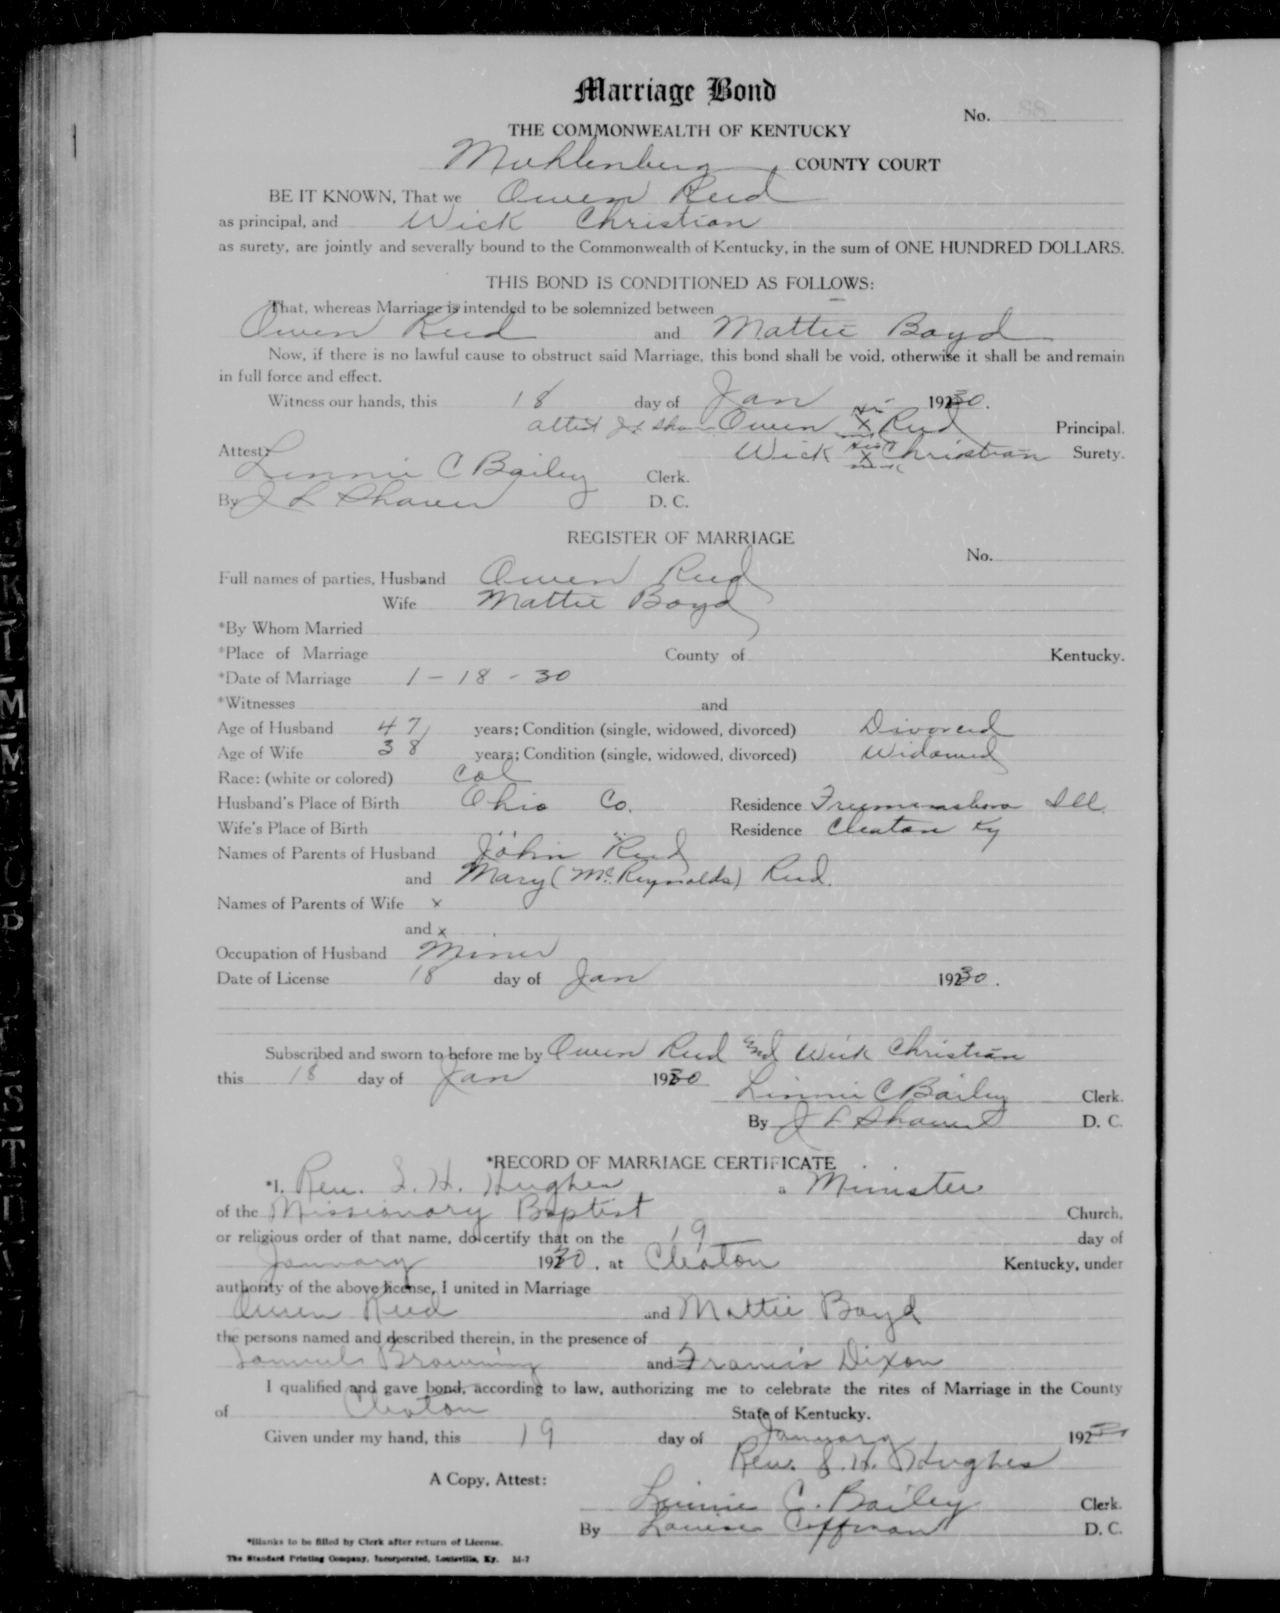 Marriage Bond
No.
THE COMMONWEALTH OF KENTUCKY
Muhlenberg, COUNTY COURT
BE IT KNOWN, That we Owen Reed
as principal, and Wick Christian
as surety, are jointly and severally bound to the Commonwealth of Kentucky, in the sum of ONE HUNDRED DOLLARS.
THIS BOND IS CONDITIONED AS FOLLOWS:
That, whereas Marriage is intended to be solemnized between
Owen Reed and Mattie Boyd
Now, if there is no lawful cause to obstruct said Marriage, this bond shall be void, otherwise it shall be and remain
in full force and effect.
Witness our hands, this 18 day of Jan 1930.
attest Owen his X mark Reed Principal.
Attest: Wick his X mark Christian Surety.
Linnie C Bailey Clerk.
By J L Shaver D. C.
REGISTER OF MARRIAGE
No.
Full names of parties, Husband Owen Reed
Wife Mattie Boyd
*By Whom Married
*Place of Marriage County of Kentucky.
*Date of Marriage 1-18-30
*Witnesses and
Age of Husband 47 years; Condition (single, widowed, divorced) Divorced
Age of Wife 38 years; Condition (single, widowed, divorced) Widowed
Race: (white or colored) Col
Husband's Place of Birth Ohio Co. Residence Ill.
Wife's Place of Birth " " Residence Cleaton Ky
Names of Parents of Husband John Reed
and Mary (McReynolds) Reed.
Names of Parents of Wife x
and x
Occupation of Husband Miner
Date of License 18 day of Jan 1930.
Subscribed and sworn to before me by Owen Reed and Wick Christian
this 18 day of Jan 1930
Linnie C Bailey Clerk.
By J L Shaver D. C.
*RECORD OF MARRIAGE CERTIFICATE
*I, Rev. S. H. Hughes a Minister
of the Missionary Baptist Church,
or religious order of that name, do certify that on the 19 day of
January 1930, at Cleaton Kentucky, under
authority of the above license, I united in Marriage
Owen Reed and Mattie Boyd
the persons named and described therein, in the presence of
Samuel Browning and Francis Dixon
I qualified and gave bond, according to law, authorizing me to celebrate the rites of Marriage in the County
of Cleaton State of Kentucky.
Given under my hand, this 19 day of January 192
Rev. S. H. Hughes
A Copy, Attest:
Linnie C. Bailey Clerk.
By Louise Coffman D. C.
*Blanks to be filled by Clerk after return of License.
The Standard Printing Company, Incorporated, Louisville, Ky. M-7